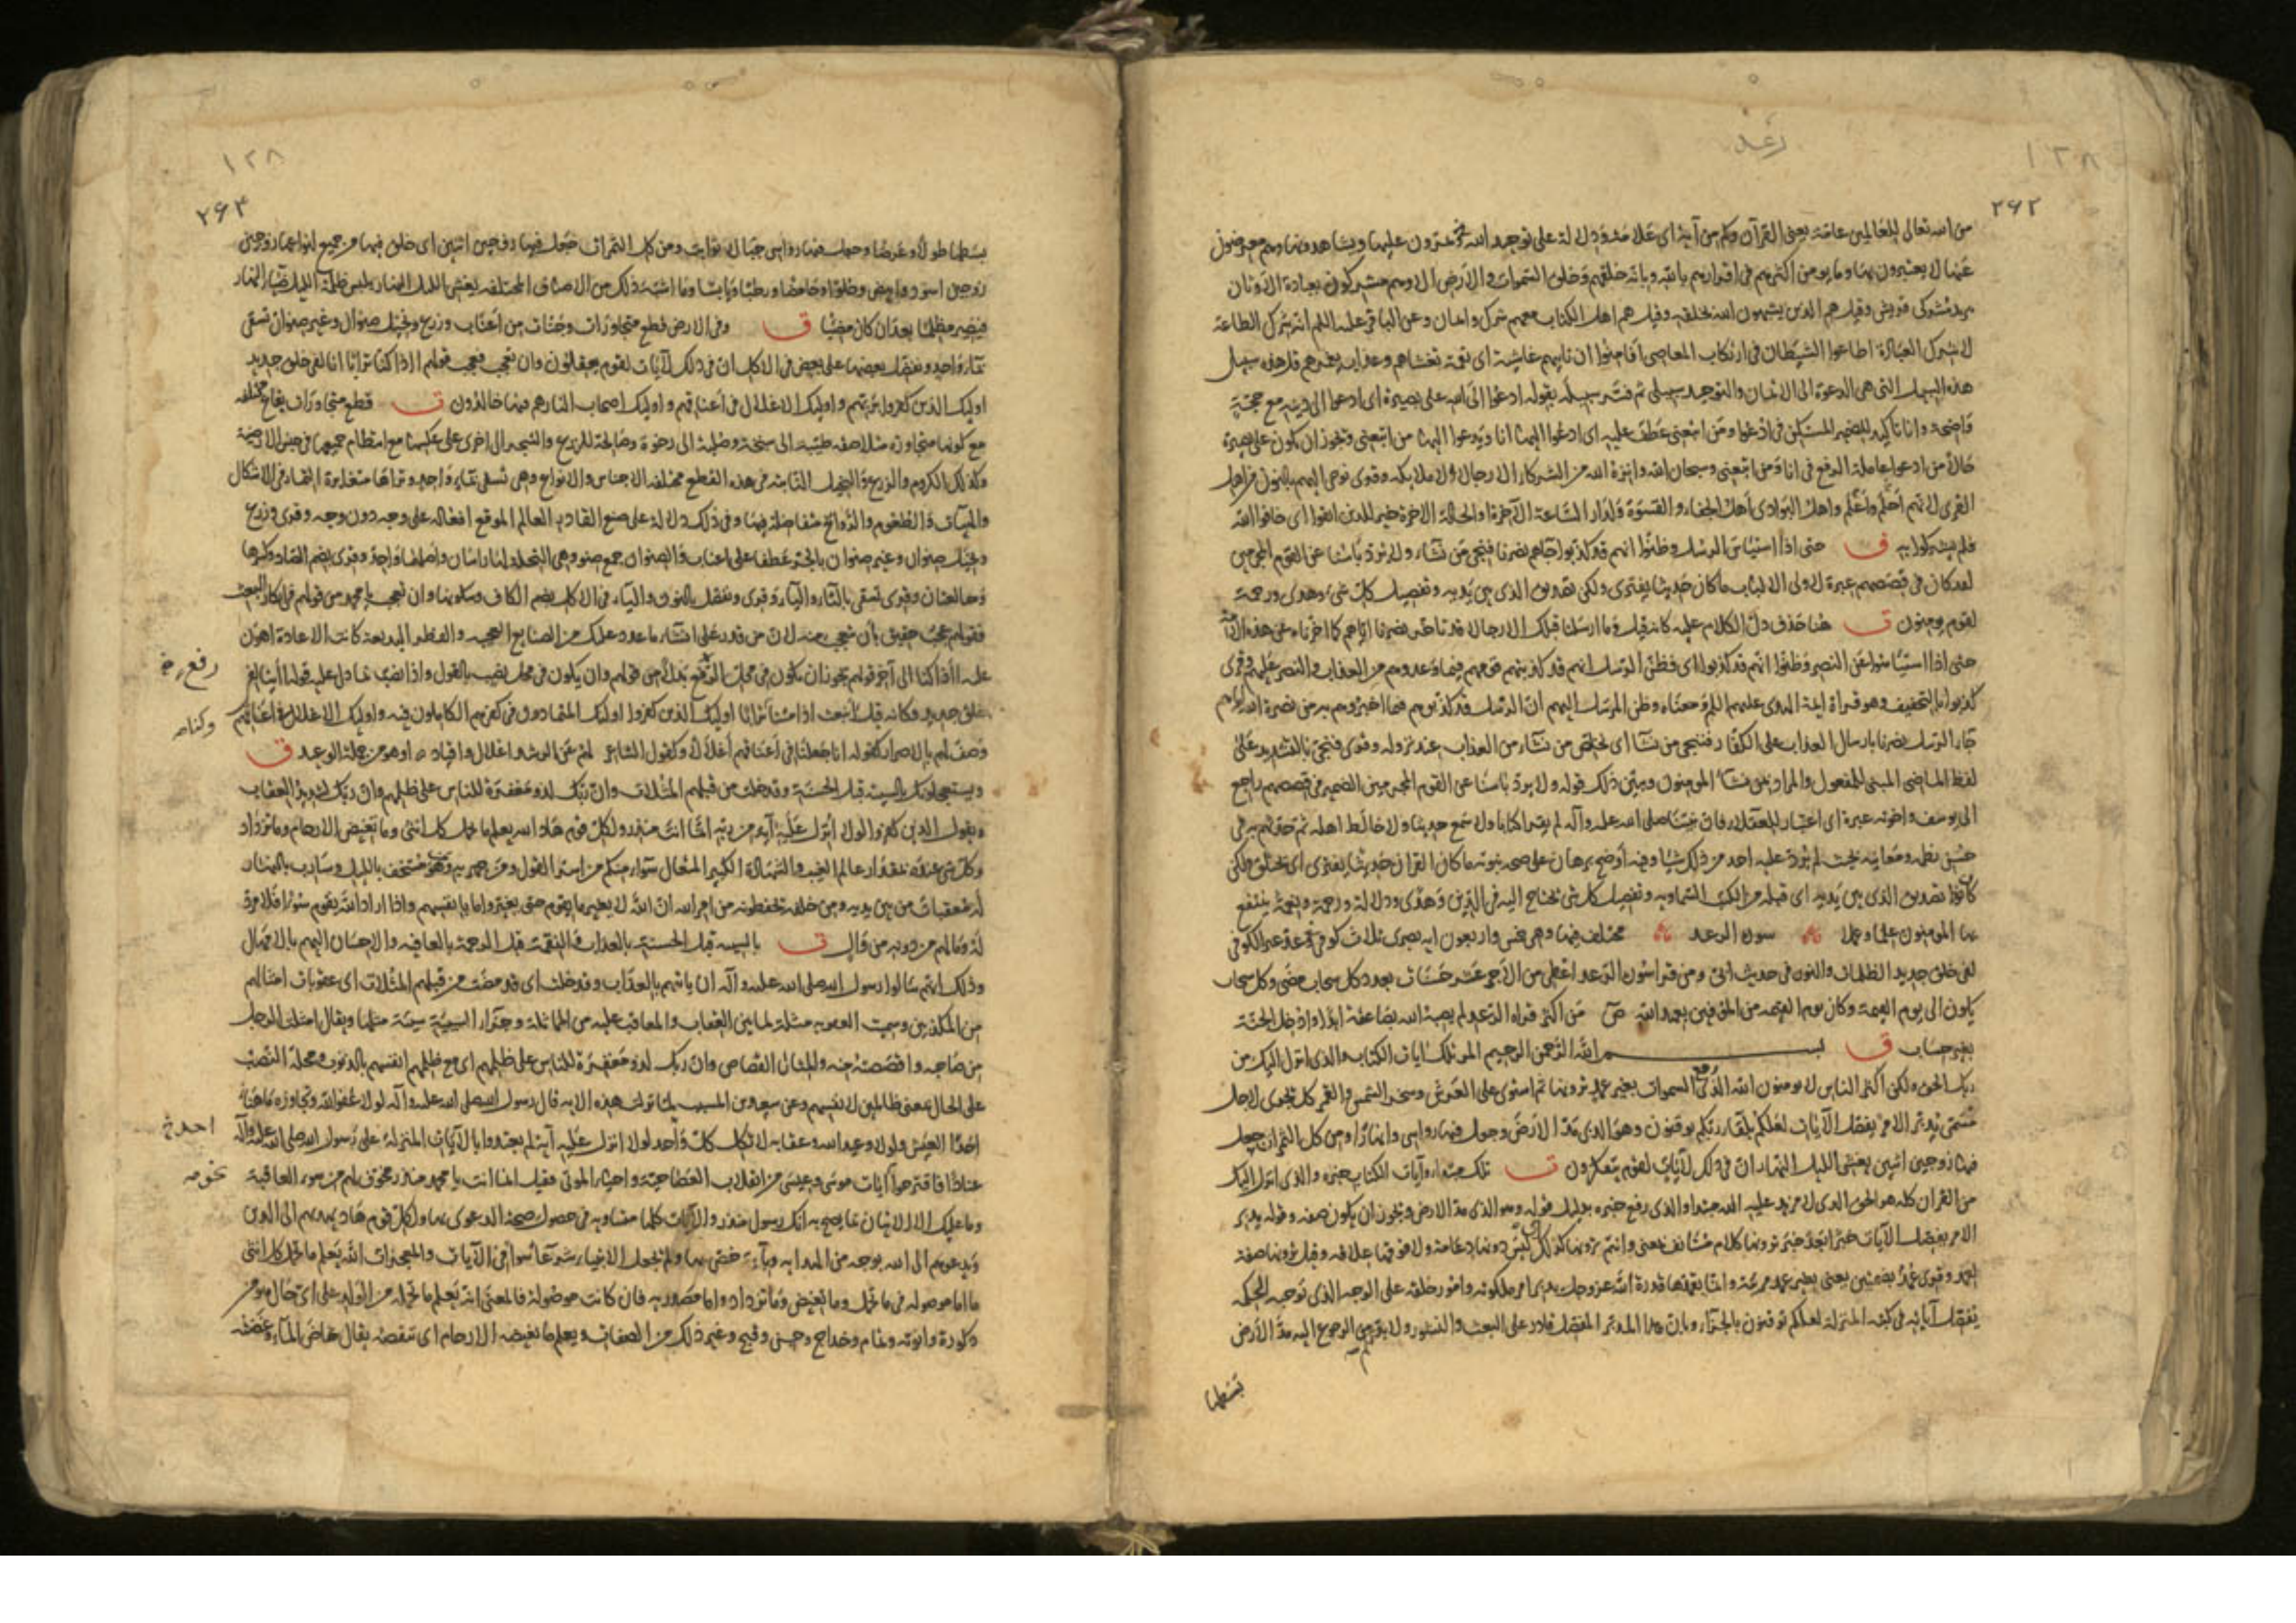 رعد
١٢٨
٢٦٢
من الله تعالى للعالمين عامة يعنى القرآن وكم من آية اى علامة ودلالة على توحيد الله يمرون عليها ويشاهدونها وهم معرضون
عنها لا يعتبرون بها وما يومن اكثرهم فى اقرارهم بالله وبانه خلقهم وخلق السموات والارض الا وهم مشركون بعبادة الاوثان
يريد مشركى قريش وقيل هم الذين يشبهون الله بخلقه وقيل هم اهل الكتاب معهم شرك وايمان وعن الباقر عليه السلم انه شرك الطاعة
لا شرك العبادة اطاعوا الشيطان فى ارتكاب المعاصى افامنوا ان تاتيهم غاشية اى نقمة تغشاهم وعذاب يغمرهم قل هذه سبيلى
هذه السبيل التى هى الدعوة الى الايمان والتوحيد سبيلى ثم فسر سبيله بقوله ادعوا الى الله على بصيرة اى ادعوا الى دينه مع حجة
واضحة وانا تاكيد للضمير المستكن فى ادعوا ومن اتبعنى عطف عليه اى ادعوا اليها انا ويدعوا اليها من اتبعنى ويجوز ان يكون على بصيرة
حالا من ادعوا عاملة الرفع فى انا ومن اتبعنى وسبحان الله وانزه الله من الشركاء الا رجالا لا ملائكة وقرى نوحى اليهم بالنون من اهل
القرى لانهم احلم واعلم واهل البوادى اهل الجفاء والقسوة ولدار الساعة الآخرة او الحالة الاخرة خير للذين اتقوا اى خافوا الله
فلم يشركوا به ق حتى اذا استيأس الرسل وظنوا انهم قد كذبوا جاءهم نصرنا فنجى من نشاء ولا يرد باسنا عن القوم المجرمين
لقد كان فى قصصهم عبرة لاولى الالباب ما كان حديثا يفترى ولكن تصديق الذى بين يديه وتفصيل كل شىء وهدى ورحمة
لقوم يومنون ق هنا حذف دل الكلام عليه كانه قيل وما ارسلنا قبلك الا رجالا قد تاخر نصرنا اياهم كما اخرناه عن هذه الامة
حتى اذا استيأسوا عن النصر وظنوا انهم قد كذبوا اى فظن الرسل انهم قد كذبتهم قومهم فيما وعدوهم من العذاب والنصر عليهم وقرى
كذبوا بالتخفيف وهو قراة ايمة الهدى عليهم السلم ومعناه وظن المرسل اليهم ان الرسل قد كذبوهم فيما اخبروهم به من نصرة الله اياهم
جاء الرسل نصرنا بارسال العذاب على الكفار فننجى من نشا اى نخلص من نشاء من العذاب عند نزوله وقرى فنجى بالتشديد على
لفظ الماضى المبنى للمفعول والمراد بمن نشاء المومنون ويبين ذلك قوله ولا يرد باسنا عن القوم المجرمين الضمير فى قصصهم راجع
الى يوسف واخوته عبرة اى اعتبار للعقلاء فان نبينا صلى الله عليه وآله لم يقرأ كتابا ولا سمع حديثا ولا خالط اهله ثم حدثهم به فى
حسن نظمه ومعانيه بحيث لم يرد عليه احد من ذلك شيا وفيه اوضح برهان على صحة نبوته ما كان القران حديثا يفترى اى يختلق ولكن
كان تصديق الذى بين يديه اى قبله من الكتب السماوية وتفصيل كل شى يحتاج اليه فى الدين وهدى ودلالة ورحمة ونعمة ينتفع
بها المومنون علما وعملا سورة الرعد مختلف فيها وهى خمس واربعون اية بصرى ثلاث كوفى عد غير الكوفى
لفى خلق جديد الظلمات والنور فى حديث ابى ومن قرا سورة الرعد اعطى من الاجر عشر حسنات بعدد كل سحاب مضى وكل سحاب
يكون الى يوم القيمة وكان يوم القيمة من الموفين بعهد الله ص من اكثر قراة الرعد لم يصبه الله بصاعقة ابدا وادخل الجنة
بغير حساب ق بسم الله الرحمن الرحيم المر تلك ايات الكتاب والذى انزل اليك من
ربك الحق ولكن اكثر الناس لا يومنون الله الذى رفع السموات بغير عمد ترونها ثم استوى على العرش وسخر الشمس والقمر كل يجرى لاجل
مسمى يدبر الامر يفصل الآيات لعلكم بلقاء ربكم توقنون وهو الذى مد الارض وجعل فيها رواسى وانهارا ومن كل الثمرات جعل
فيها زوجين اثنين يغشى الليل النهار ان فى ذلك لآيات لقوم يتفكرون ق تلك مبتدا وآيات الكتاب خبره والذى انزل اليك
من القران كله هو الحق الذى لا مزيد عليه الله مبتدا والذى رفع خبره بدليل قوله وهو الذى مد الارض ويجوز ان يكون صفة وقوله يدبر
الامر يفصل الآيات خبرا بعد خبر ترونها كلام مستانف يعنى وانتم ترونها كذلك ليس دونها دعامة ولا فوقها علاقة وقيل ترونها صفة
لعمد وقرى عمد بضمتين يعنى بغير عمد مرئية وانما يعمدها قدرة الله عز وجل يدبر امر ملكوته وامور خلقه على الوجه الذى توجبه الحكمة
يفصل آياته فى كتبه المنزلة لعلكم توقنون بالجزاء وبان هذا المدبر المفصل قادر على البعث والنشور ولا بد لكم من الرجوع اليه مد الارض
بسطها
١٢٨
٢٦٣
بسطها طولا وعرضا وجعل فيها رواسى جبالا ثوابت ومن كل الثمرات جعل فيها زوجين اثنين اى خلق فيها من جميع انواعها زوجين
زوجين اسود وابيض وحلوا وحامضا ورطبا ويابسا وما اشبه ذلك من الاصناف المختلفة يغشى الليل النهار يلبس ظلمة الليل ضياء النهار
فيصير مظلما بعد ان كان مضيئا ق وفى الارض قطع متجاورات وجنات من اعناب وزرع ونخيل صنوان وغير صنوان تسقى
بماء واحد ونفضل بعضها على بعض فى الاكل ان فى ذلك لآيات لقوم يعقلون وان تعجب فعجب قولهم ااذا كنا ترابا انا لفى خلق جديد
اوليك الذين كفروا بربهم واوليك الاغلال فى اعناقهم واوليك اصحاب النار هم فيها خالدون ق قطع متجاورات بقاع مختلفة
مع كونها متجاورة متلاصقة طيبة الى سبخة وصلبة الى رخوة وصالحة للزرع والشجر الى اخرى على عكسها مع انتظام جميعها فى جنس الارضية
وكذلك الكروم والزروع والنخيل النابتة فى هذه القطع مختلفة الاجناس والانواع وهى تسقى بماء واحد وتراها متغايرة الثمار فى الاشكال
والهيآت والطعوم والروائح متفاضلة فيها وفى ذلك دلالة على صنع القادر العالم الموقع افعاله على وجه دون وجه وقرى وزرع
ونخيل صنوان وغير صنوان بالجر عطف على اعناب والصنوان جمع صنو وهى النخلة لها راسان واصلهما واحد وقرى بضم الصاد وكسرها
وهما لغتان وقرى تسقى بالتاء والياء وقرى ونفضل بالنون والياء فى الاكل بضم الكاف وسكونها وان تعجب يا محمد من قولهم فى انكار البعث
فقولهم عجب حقيق بان تتعجب منه لان من قدر على انشاء ما عدد عليك من الصنايع العجيبة والفطر البديعة كانت الاعادة اهون
عليه ااذا كنا الى آخر قولهم يجوز ان يكون فى محل الرفع بدلا من قولهم وان يكون فى محل نصب بالقول واذا نصب بما دل عليه قوله اانا لفى
رفع خ
خلق جديد وكانه قيل انبعث اذا متنا ترابا اوليك الذين كفروا اوليك المتمادون فى كفرهم الكاملون فيه واوليك الاغلال فى اعناقهم
وكنا صه
وصف لهم بالاصرار كقوله انا جعلنا فى اعناقهم اغلالا وكقول الشاعر لهم عن الرشد اغلال واقياد او هو من جملة الوعيد ق
ويستعجلونك بالسيئة قبل الحسنة وقد خلت من قبلهم المثلات وان ربك لذو مغفرة للناس على ظلمهم وان ربك لشديد العقاب
ويقول الذين كفروا لولا انزل عليه آية من ربه انما انت منذر ولكل قوم هاد الله يعلم ما تحمل كل انثى وما تغيض الارحام وما تزداد
وكل شى عنده بمقدار عالم الغيب والشهادة الكبير المتعال سواء منكم من اسر القول ومن جهر به ومن هو مستخف بالليل وسارب بالنهار
له معقبات من بين يديه ومن خلفه يحفظونه من امر الله ان الله لا يغير ما بقوم حتى يغيروا ما بانفسهم واذا اراد الله بقوم سوءا فلا مرد
له وما لهم من دونه من وال ق بالسيئة قبل الحسنة بالعذاب والنقمة قبل الرحمة بالعافية والاحسان اليهم بالامهال
وذلك انهم سالوا رسول الله صلى الله عليه وآله ان ياتيهم بالعذاب وقد خلت اى قد مضت من قبلهم المثلات اى عقوبات امثالهم
من المكذبين وسميت العقوبة مثلة لما بين العقاب والمعاقب عليه من المماثلة وجزاء السيئة سيئة مثلها ويقال امثلت الرجل
من صاحبه واقصصته منه والمثال القصاص وان ربك لذو مغفرة للناس على ظلمهم اى مع ظلمهم انفسهم بالذنوب ومحله النصب
على الحال بمعنى ظالمين لانفسهم وعن سعيد بن المسيب لما نزلت هذه الاية قال رسول الله صلى الله عليه وآله لولا عفو الله وتجاوزه ما هنا
احدا العيش ولولا وعيد الله وعقابه لاتكل كل واحد لولا انزل عليه آية لم يعتدوا بالآيات المنزلة على رسول الله صلى الله عليه وآله
احد خ
عنادا فاقترحوا آيات موسى وعيسى من انقلاب العصا حية واحياء الموتى فقيل انما انت يا محمد منذر مخوف لهم من سوء العاقبة
وما عليك الا الاتيان بما يصح به انك رسول منذر والآيات كلها متساوية فى حصول صحة الدعوى بها ولكل قوم هاد يهديهم الى الدين
ويدعوهم الى الله بوجه من الهداية وبآية خص بها ولم يجعل الانبياء شرعا سوا فى الآيات والمعجزات الله يعلم ما تحمل كل انثى
ما اما موصولة فى ما تحمل وما تغيض وما تزداد واما مصدرية فان كانت موصولة فالمعنى انه يعلم ما تحمله من الولد على اى حال هو من
ذكورة وانوثة وتمام وخداج وحسن وقبح وغير ذلك من الصفات ويعلم ما تغيضه الارحام اى تنقصه يقال غاض الماء وغضته